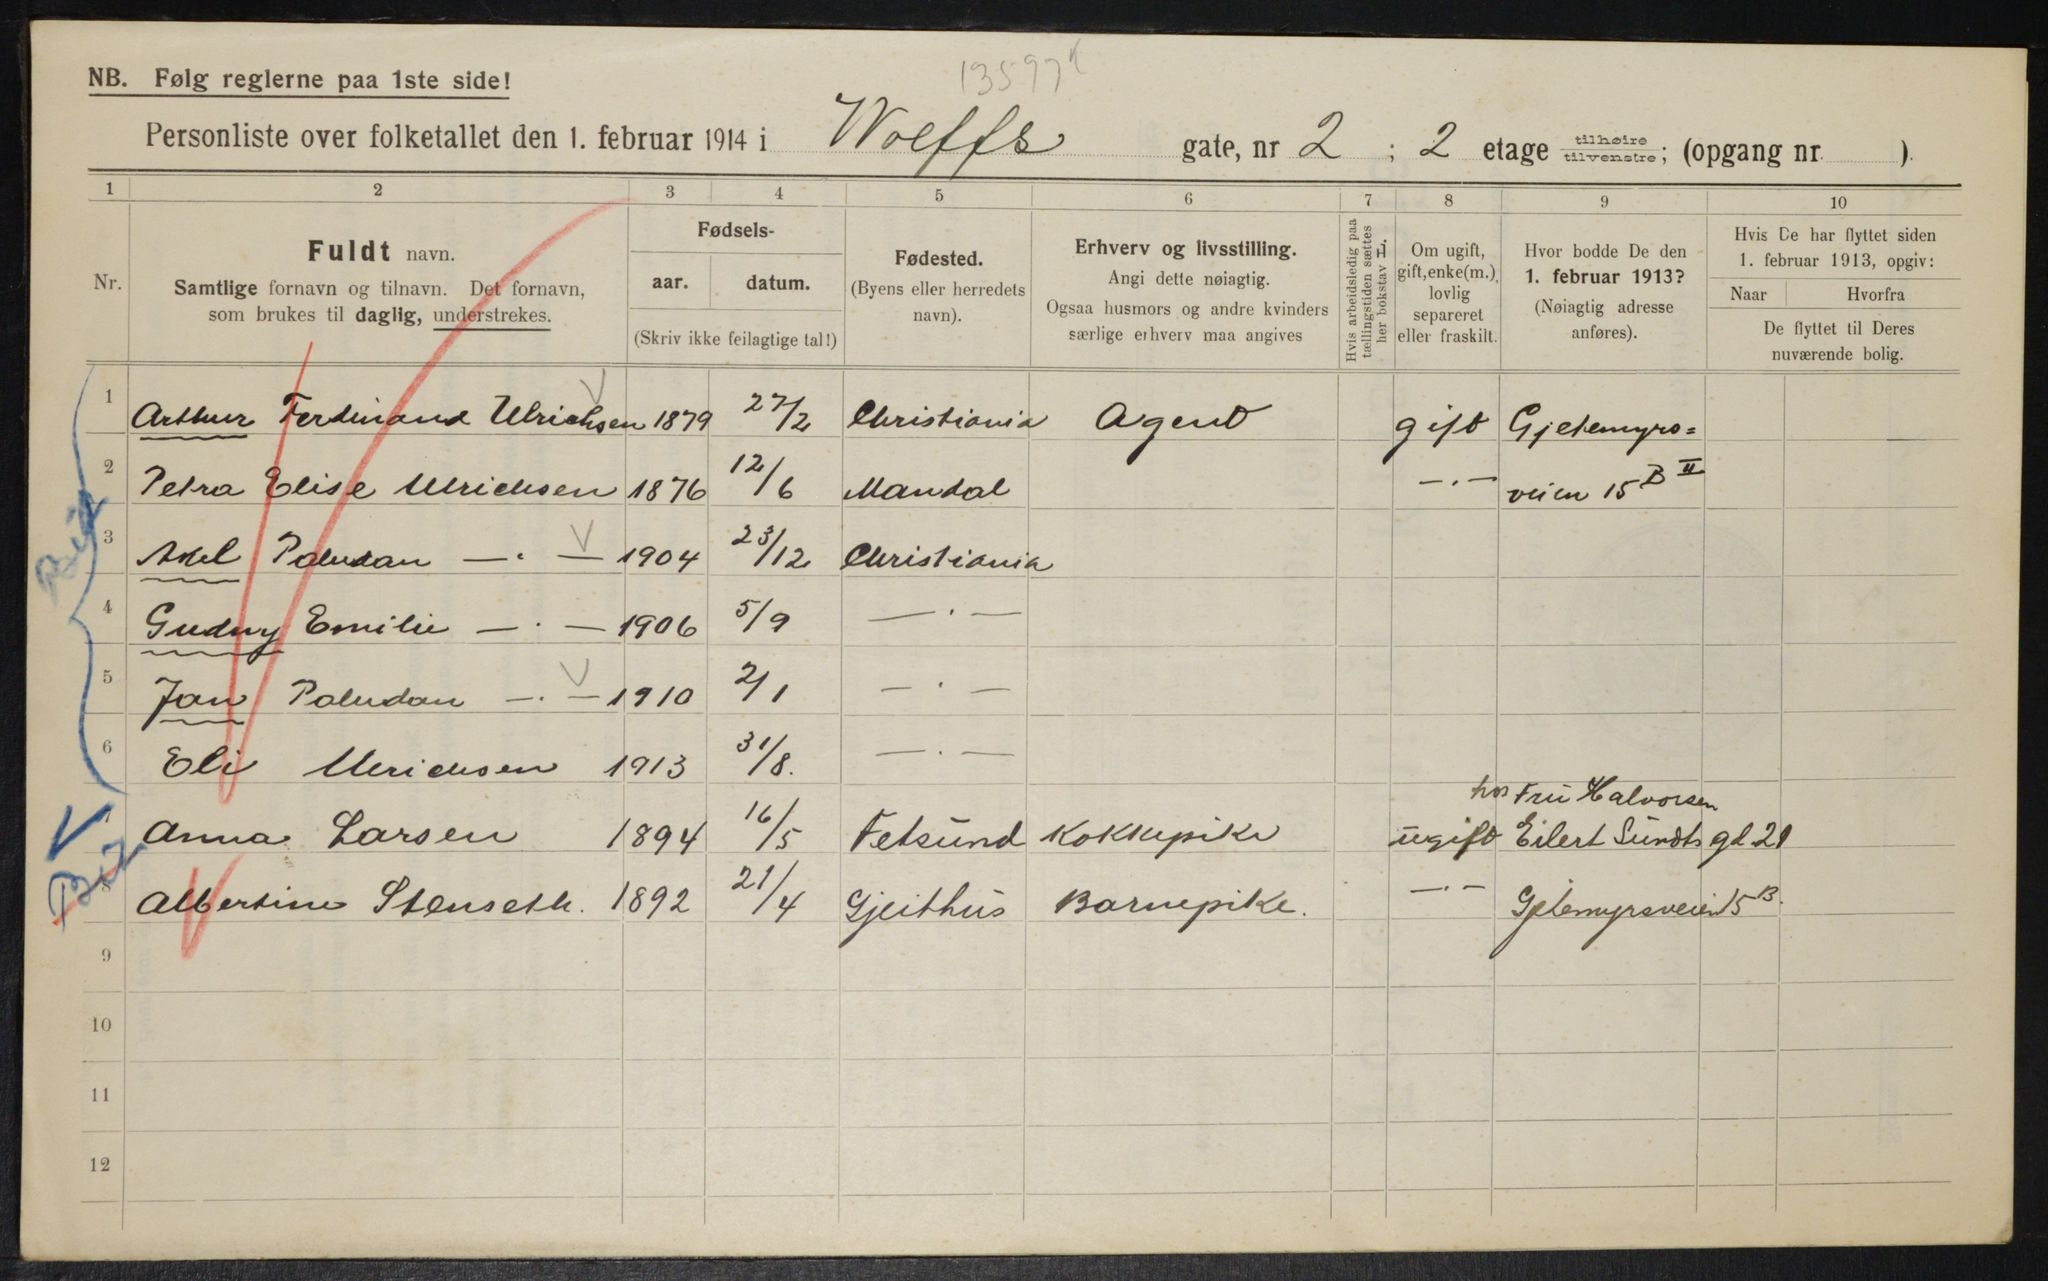 13597
NB. Følg reglerne paa 1ste side!
Personliste over folketallet den 1. februar 1914 i Wolffs gate, nr 2 ; 2 etage tilhøire tilvenstre; (opgang nr. ).
1 2 3 4 5 6 7 8 9 10
Nr.
Fuldt navn.
Samtlige fornavn og tilnavn. Det fornavn,
som brukes til daglig, understrekes.
Fødsels-
aar. datum.
(Skriv ikke feilagtige tal!)
Fødested.
(Byens eller herredets
navn).
Erhverv og livsstilling.
Angi dette nøiagtig.
Ogsaa husmors og andre kvinders
særlige erhverv maa angives
Hvis arbeidsledig paa
tællingstiden sættes
her bokstav L.
Om ugift,
gift, enke(m.),
lovlig
separeret
eller fraskilt.
Hvor bodde De den
1. februar 1913?
(Nøiagtig adresse
anføres).
Hvis De har flyttet siden
1. februar 1913, opgiv:
Naar Hvorfra
De flyttet til Deres
nuværende bolig.
1 Arthur Ferdinand Ulrichsen 1879 27/2 Christiania Agent gift Gjetemyrs=
2 Petra Elise Ulrichsen 1876 12/6 Mandal —·— veien 15 B II
3 Axel Paludan —·— 1904 23/12 Christiania
4 Gudny Emilie —·— 1906 5/9 —·—
5 Jan Paludan —·— 1910 2/1 —·—
6 Eli Ulrichsen 1913 31/8. —·—
hos Fru Halvorsen
Anna Larsen 1894 16/5 Fetsund Kokkepike ugift Eilert Sundts gd. 21
8 Albertine Stenseth. 1892 21/4 Gjeithus Barnepike. —·— Gjetemyrsveien 15 B.
9
10
11
12